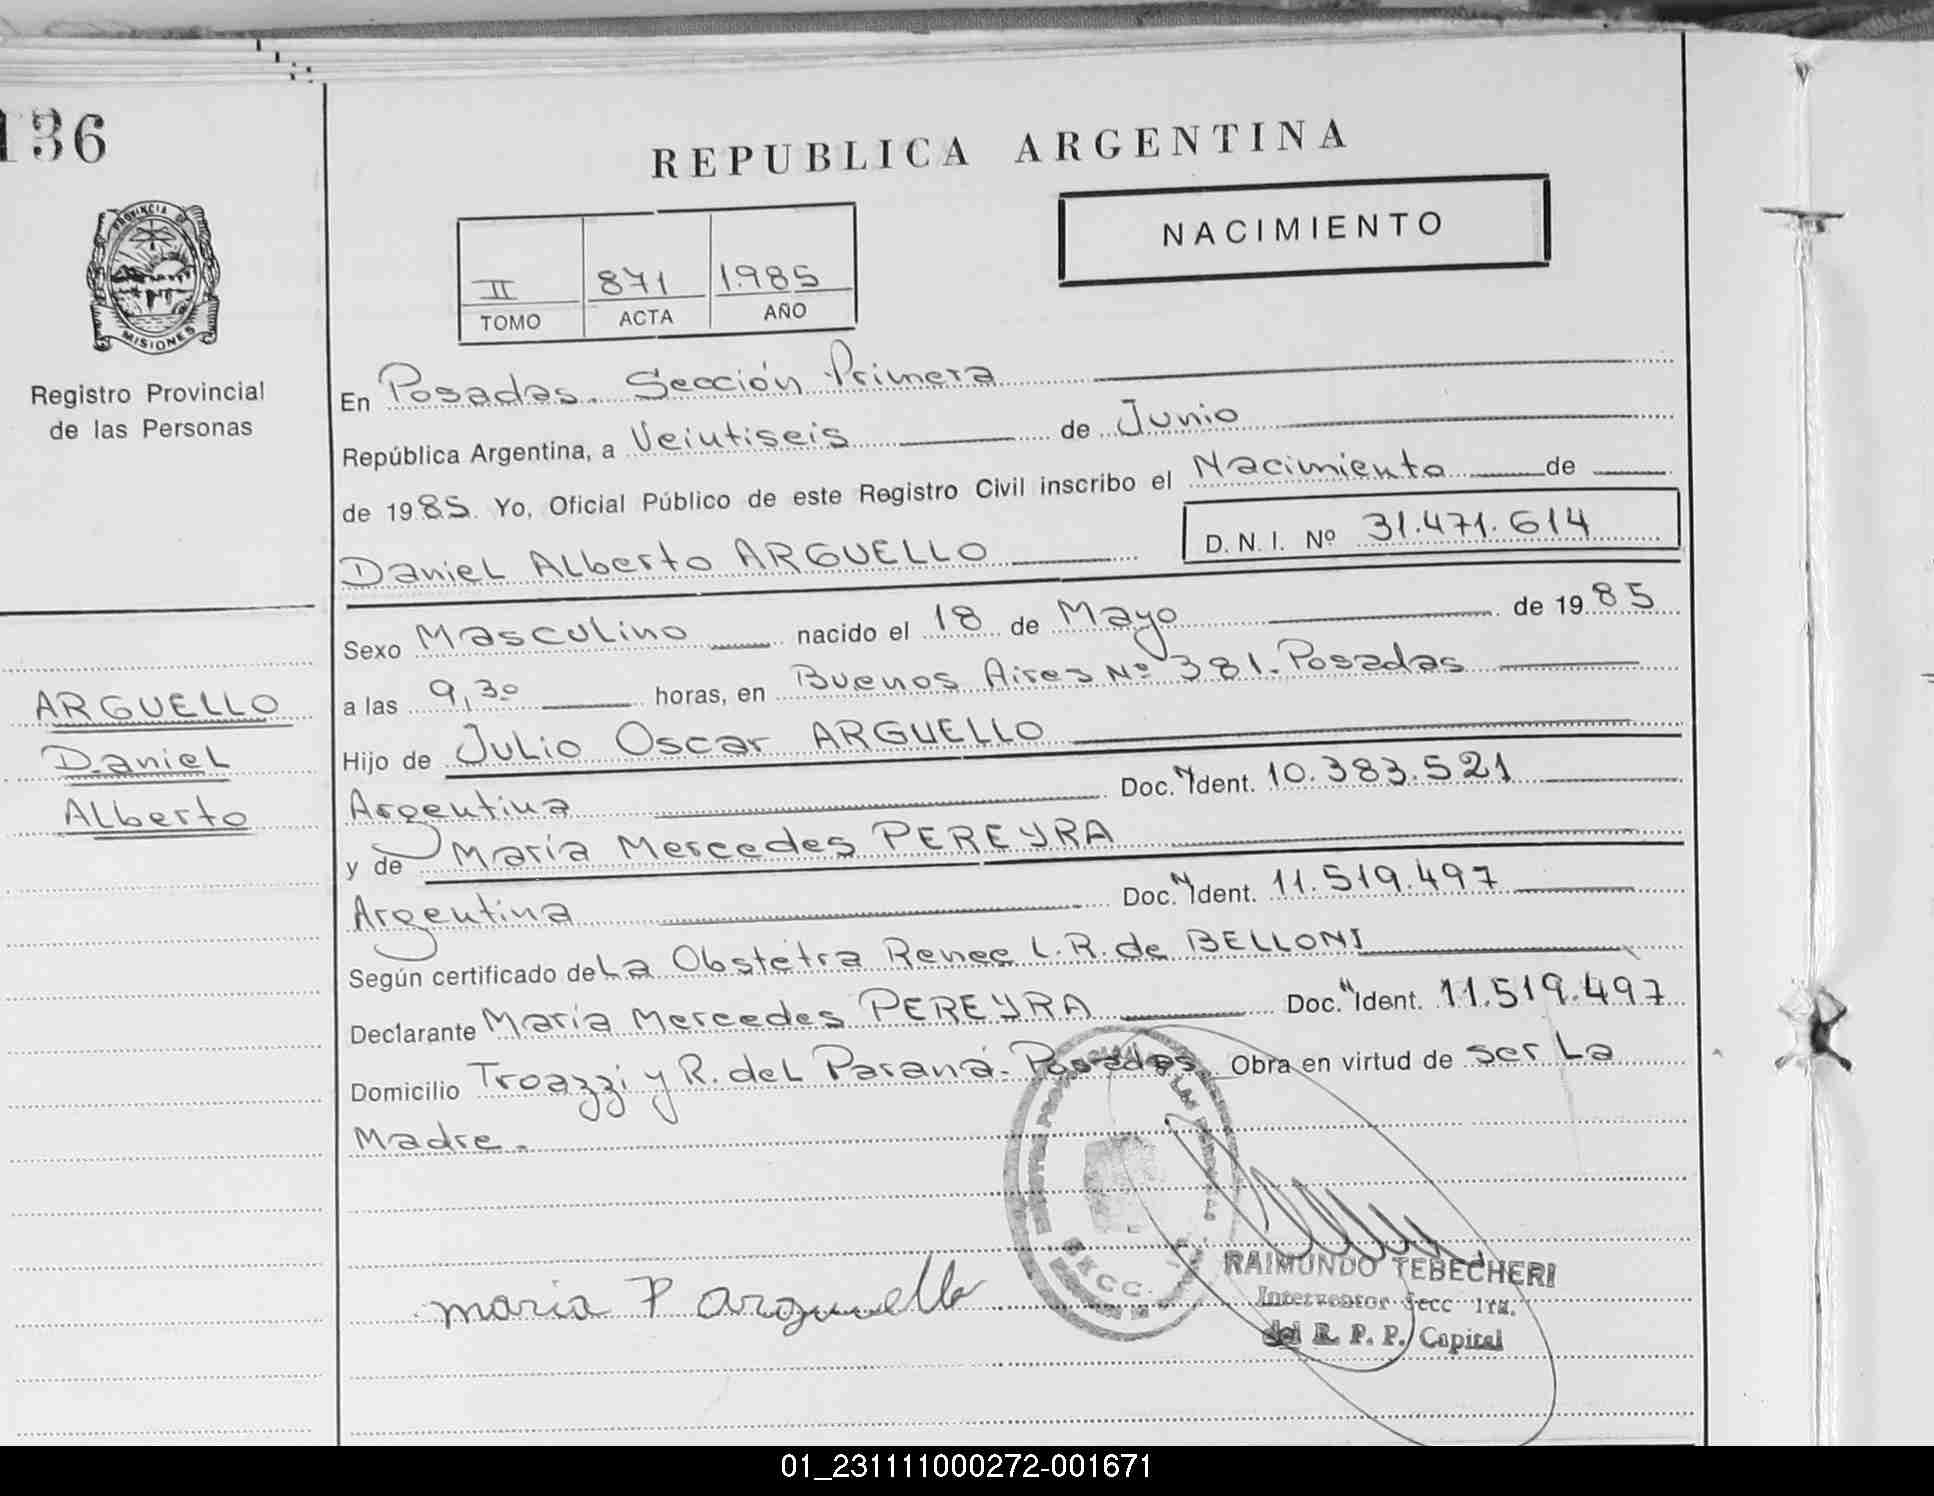 136
REPUBLICA ARGENTINA
NACIMIENTO
II 871 1.985
TOMO ACTA AÑO
PROVINCIA DE
MISIONES
Registro Provincial
de las Personas
En Posadas. Sección Primera
República Argentina, a Veintiseis de Junio
de 1985. Yo, Oficial Público de este Registro Civil inscribo el Nacimiento de
Daniel Alberto ARGUELLO D. N. I. Nº 31.471.614
Sexo Masculino nacido el 18 de Mayo de 1985
a las 9,30 horas, en Buenos Aires Nº 381. Posadas
ARGUELLO
Daniel
Alberto
Hijo de Julio Oscar ARGUELLO
Argentina Doc. N Ident. 10.383.521
y de María Mercedes PEREYRA
Argentina Doc. N Ident. 11.519.497
Según certificado de La Obstétra Renee L.R. de BELLONI
Declarante María Mercedes PEREYRA Doc. N Ident. 11.519.497
Domicilio Troazzi y R. del Paraná. Posadas Obra en virtud de ser La
Madre.
maria P arguello
RAIMUNDO TEBECHERI
Interventor Secc 1ra.
del R. P. P. Capital
01_231111000272-001671